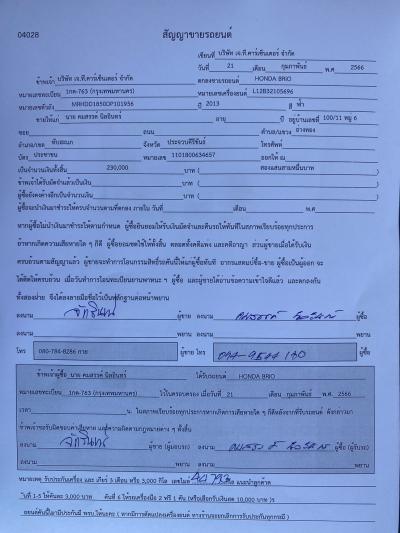 04028
สัญญาขายรถยนต์
เขียนที่ บริษัท เจ.ที.คาร์เซ็นเตอร์ จำกัด
วันที่ 21 เดือน กุมภาพันธ์ พ.ศ 2566
ข้าพเจ้า บริษัท เจ.ที.คาร์เซ็นเตอร์ จำกัด ตกลงขายรถยนต์ HONDA BRIO
หมายเลขทะเบียน 1กค-763 (กรุงเทพมหานคร) หมายเลขเครื่องยนต์ L12B32105696
หมายเลขตัวถัง MRHDD1850DP101936 ปี 2013 สี ฟ้า
ขายให้แก่ นาย คมสรรค์ นิลอินทร์ อายุ ปี อยู่บ้านเลขที่ 100/11 หมู่ 6
ซอย ถนน ตำบล/แขวง อ่างทอง
อำเภอ/เขต ทับสะแก จังหวัด ประจวบคีรีขันธ์ โทรศัพท์
บัตร ประชาชน หมายเลข 1101800634657 ออกให้ ณ
เป็นจำนวนเงินทั้งสิ้น 230,000 บาท ( สองแสนสามหมื่นบาท )
ข้าพเจ้าได้รับมัดจำแล้วเป็นเงิน บาท ( )
ผู้ซื้อยังคงค้างอีกเป็นจำนวนเงิน บาท ( )
ผู้ซื้อจะนำเงินมาชำระให้ครบจำนวนตามที่ตกลง ภายใน วันที่ เดือน พ.ศ.
หากผู้ซื้อไม่นำเงินมาชำระให้ตามกำหนด ผู้ซื้อยินยอมให้ริบเงินมัดจำและคืนรถให้ทันทีในสภาพเรียบร้อยทุกประการ
ถ้าหากเกิดความเสียหายใด ๆ ก็ดี ผู้ซื้อยอมชดใช้ให้ทั้งสิ้น ตลอดทั้งคดีแพ่ง และคดีอาญา ส่วนผู้ขายเมื่อได้รับเงิน
ครบถ้วนตามสัญญาแล้ว ผู้ขายจะทำการโอนกรรมสิทธิ์รถคันนี้ให้แก่ผู้ซื้อทันที
ทั้งสองฝ่าย จึงได้ลงลายมือชื่อไว้เป็นหลักฐานต่อหน้าพยาน
ลงนาม ผู้ขาย ลงนาม ผู้ซื้อ
ลงนาม พยาน ลงนาม พยาน
โทร 080-784-8286 กาย ผู้ขาย โทร ผู้ซื้อ
ข้าพเจ้าผู้ซื้อ นาย คมสรรค์ นิลอินทร์ ได้รับรถยนต์ HONDA BRIO
หมายเลขทะเบียน 1กค-763 (กรุงเทพมหานคร) ไว้ในครอบครอง เมื่อวันที่ 21 เดือน กุมภาพันธ์ พ.ศ. 2566
เวลา น. ในสภาพเรียบร้อยทุกประการหากเกิดการเสียหายใด ๆ ก็ดีหลังจากที่รับรถยนต์ ดังกล่าวมา
ข้าพเจ้าจะรับผิดชอบค่าเสียหาย และความผิดตามกฎหมายต่าง ๆ ทั้งสิ้น
ลงนาม ผู้ขาย (ผู้มอบรถ) ลงนาม ผู้ซื้อ (ผู้รับรถ)
ลงนาม พยาน ลงนาม พยาน
หมายเหตุ รับประกันเครื่อง และ เกียร์ 3 เดือน หรือ 3,000 กิโล เลขไมล์ แนะนำลูกค้า